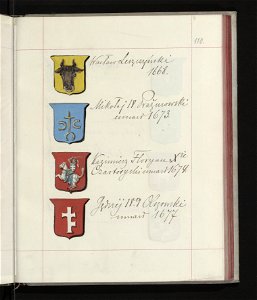 110.
Wacław Leszczyński
1666.
Mikołaj IV Prażmowski
umarł 1673
Kazimierz Floryan Xże
Czartoryski umarł 1674
Jędrzej IV Olszowski
umarł 1677